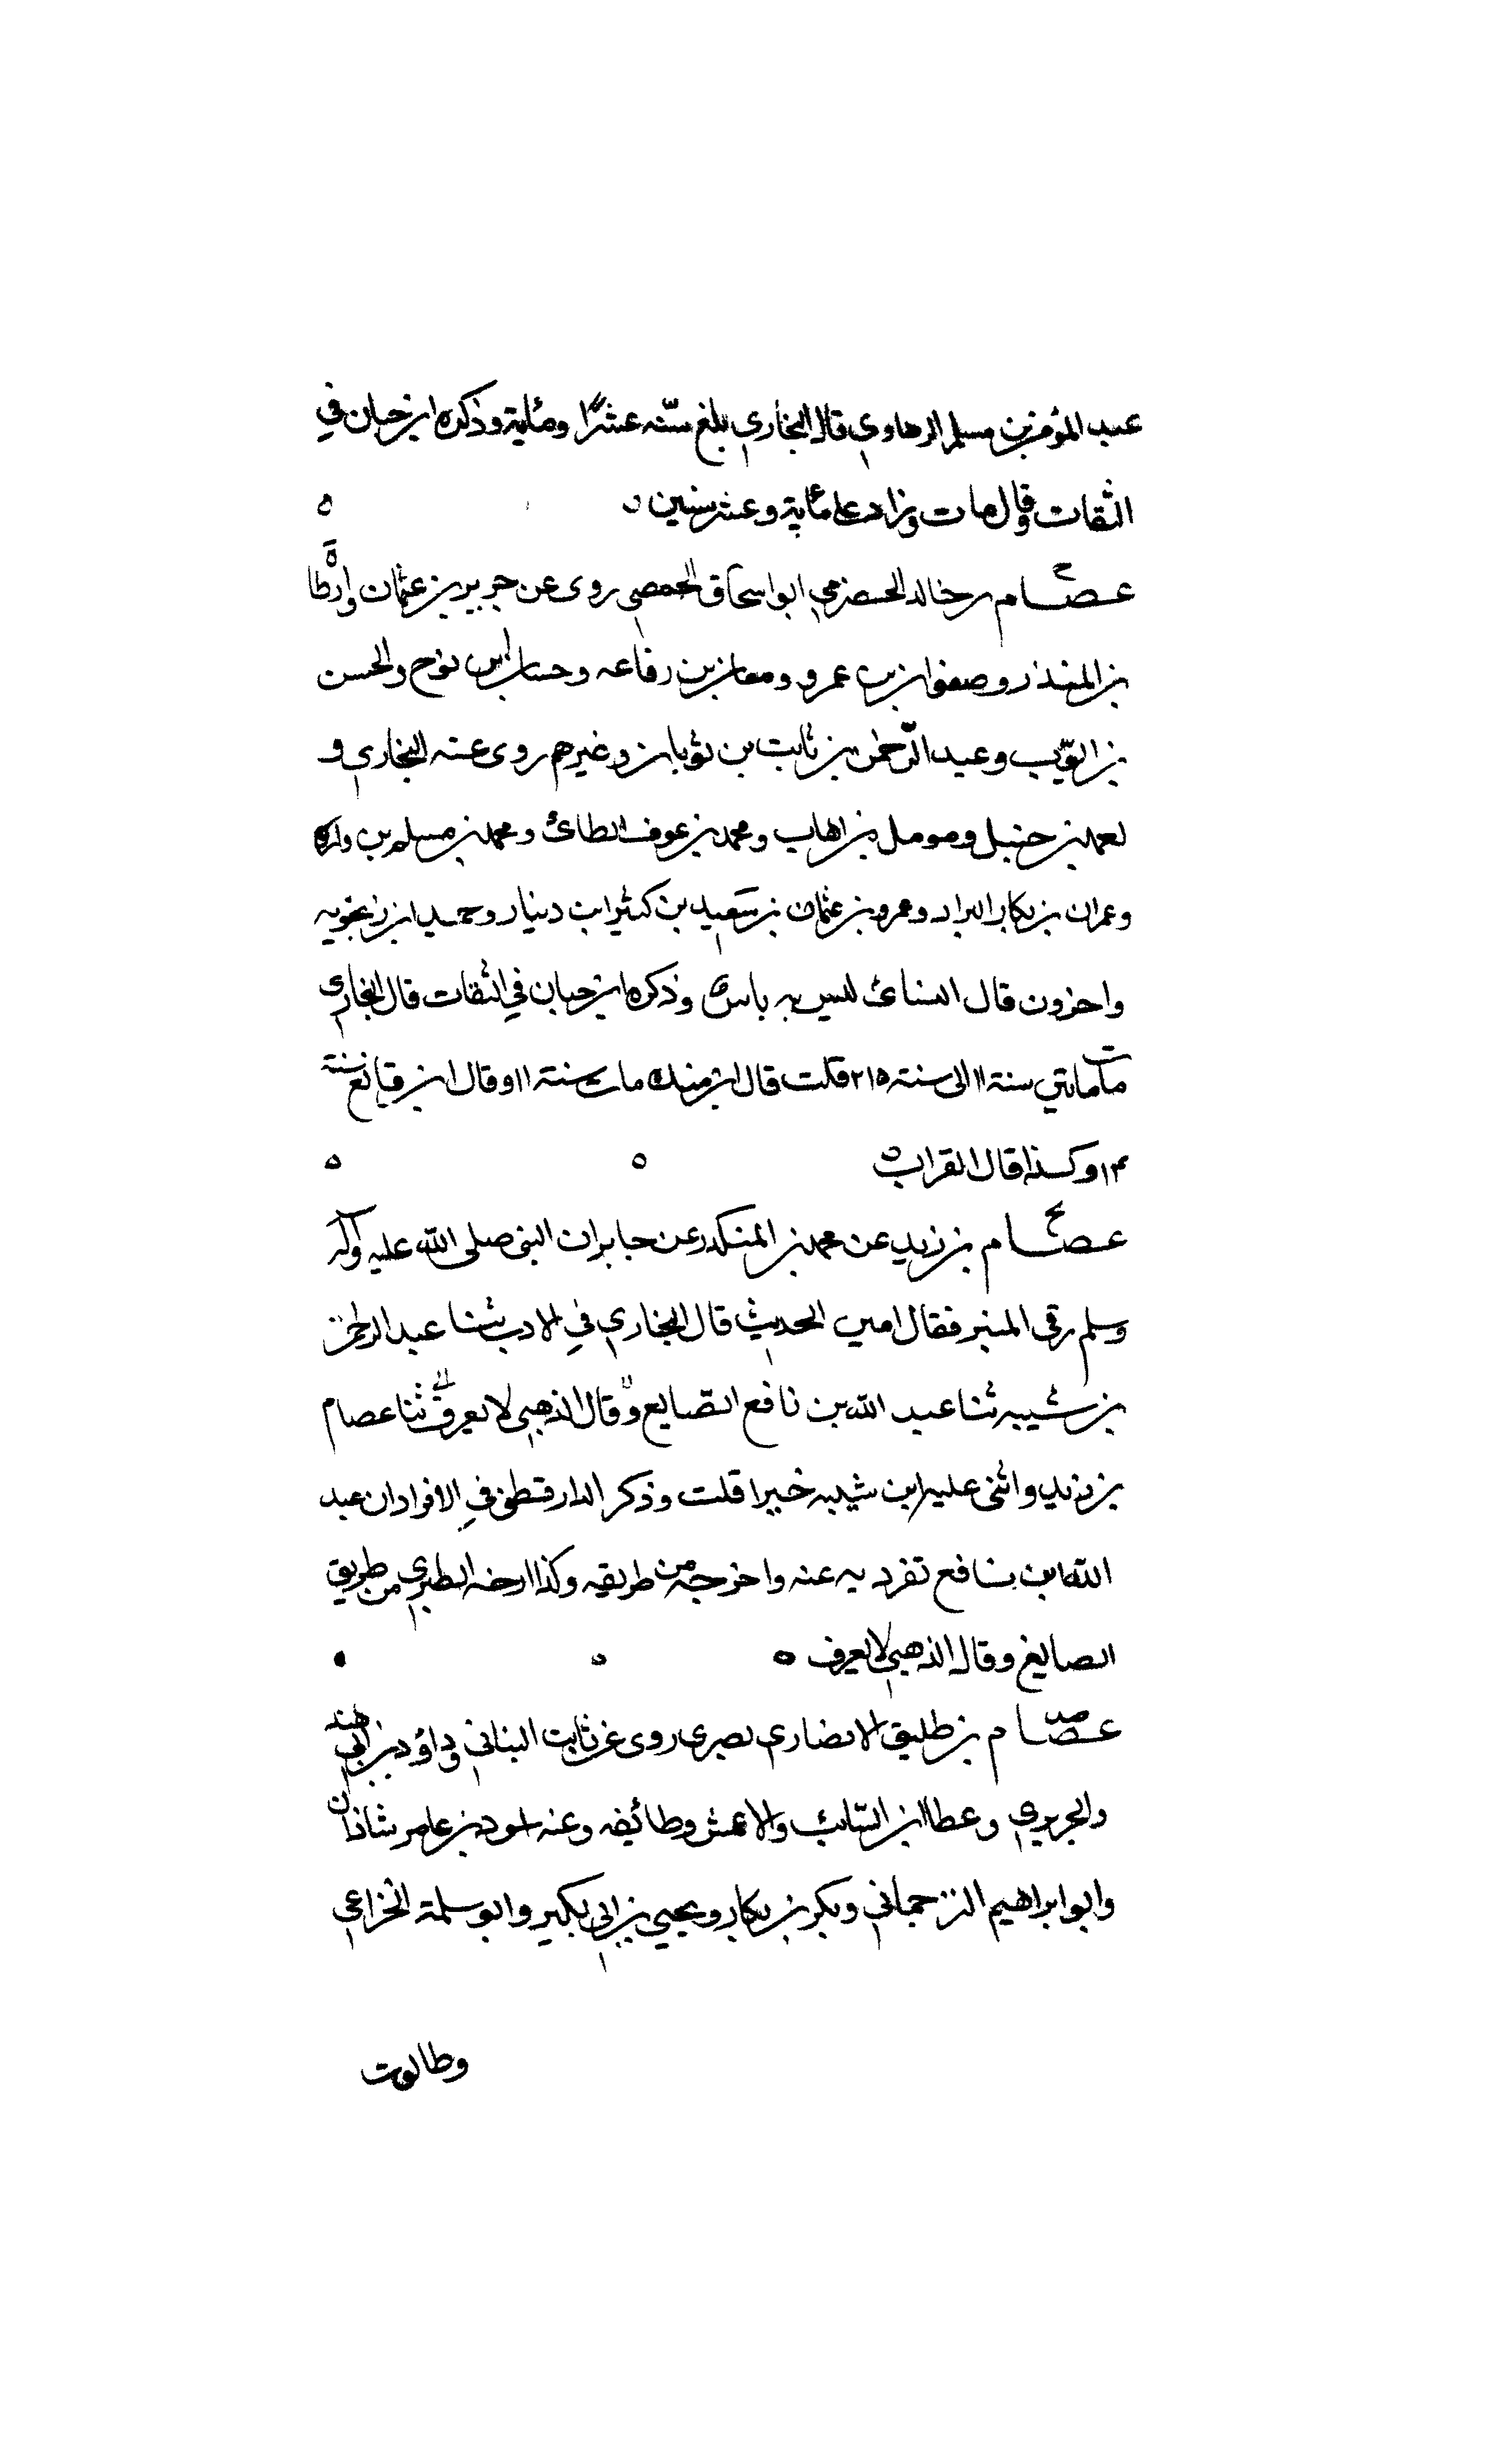 عبد المؤمن بن مسلم الرهاوي قال البخاري بلغ سنه عشرًا ومئاية وذكره ابن حبان في
الثقات وقال مات وزاد على مئاية وعشر سنين
عصام بن خالد الحضرمي ابو اسحاق الحمصي روى عن جرير بن عثمان وارطاة
بن المنذر وصفوان بن عمرو ومعان بن رفاعه وحسان ابن نوح والحسن
بن ايوب وعبد الرحمن بن ثابت بن ثوبان وغيرهم روى عنه البخاري و
احمد بن حنبل ومومل بن اهاب ومحمد بن عوف الطائ ومحمد بن مسلم بن واره
وعمران بن بكار البراد وعمرو بن عثمان بن سعيد بن كثير ابن دينار وحميد ابن زنجويه
واخرون قال النسائ ليس به باس وذكره ابن حبان في الثقات قال البخاري
مات مابين سنة ١١ الى سنة ٢١٥ قلت قال ابن منده مات سنة ١١ وقال ابن قانع سنة
١٤ وكذا قال القراب
عصام بن زيد عن محمد بن المنكدر عن جابر ان النبي صلى الله عليه وآله
وسلم رقى المنبر فقال امين الحديث قال البخاري في الادب ثنا عبد الرحمن
بن شيبه ثنا عبد الله بن نافع الصايع وقال الذهبي لا يعرف ثنا عصام
بن زيد واثنى عليه ابن شيبه خيرا قلت وذكر الدارقطني في الافراد ان عبد
الله ابن نافع تفرد به عنه واخرجه من طريقه وكذا ارخه الطبري من طريق
الصايغ وقال الذهبي لا يعرف
عصام بن طليق الانصاري بصري روى عن ثابت البناني وداؤد بن ابي هند
والجريري وعطا ابن السائب والاعمش وطائفه وعنه اسود بن عامر شاذان
وابو ابراهيم الترجماني وبكر بن بكار ويحيى بن ابي بكير وابو سلمة الخزاعي
وطالوت